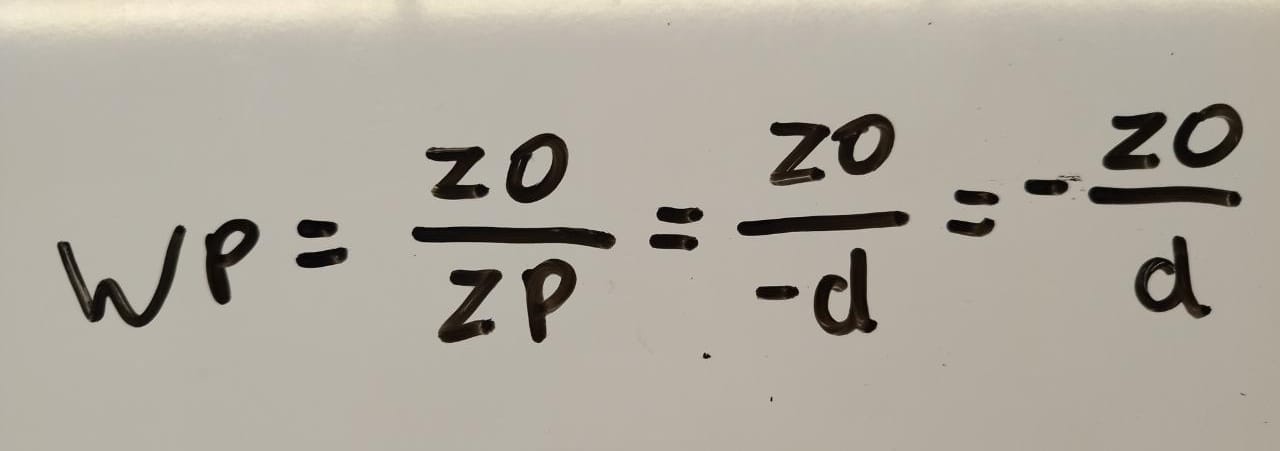 WP = ZO/ZP = ZO/-d = - ZO/d